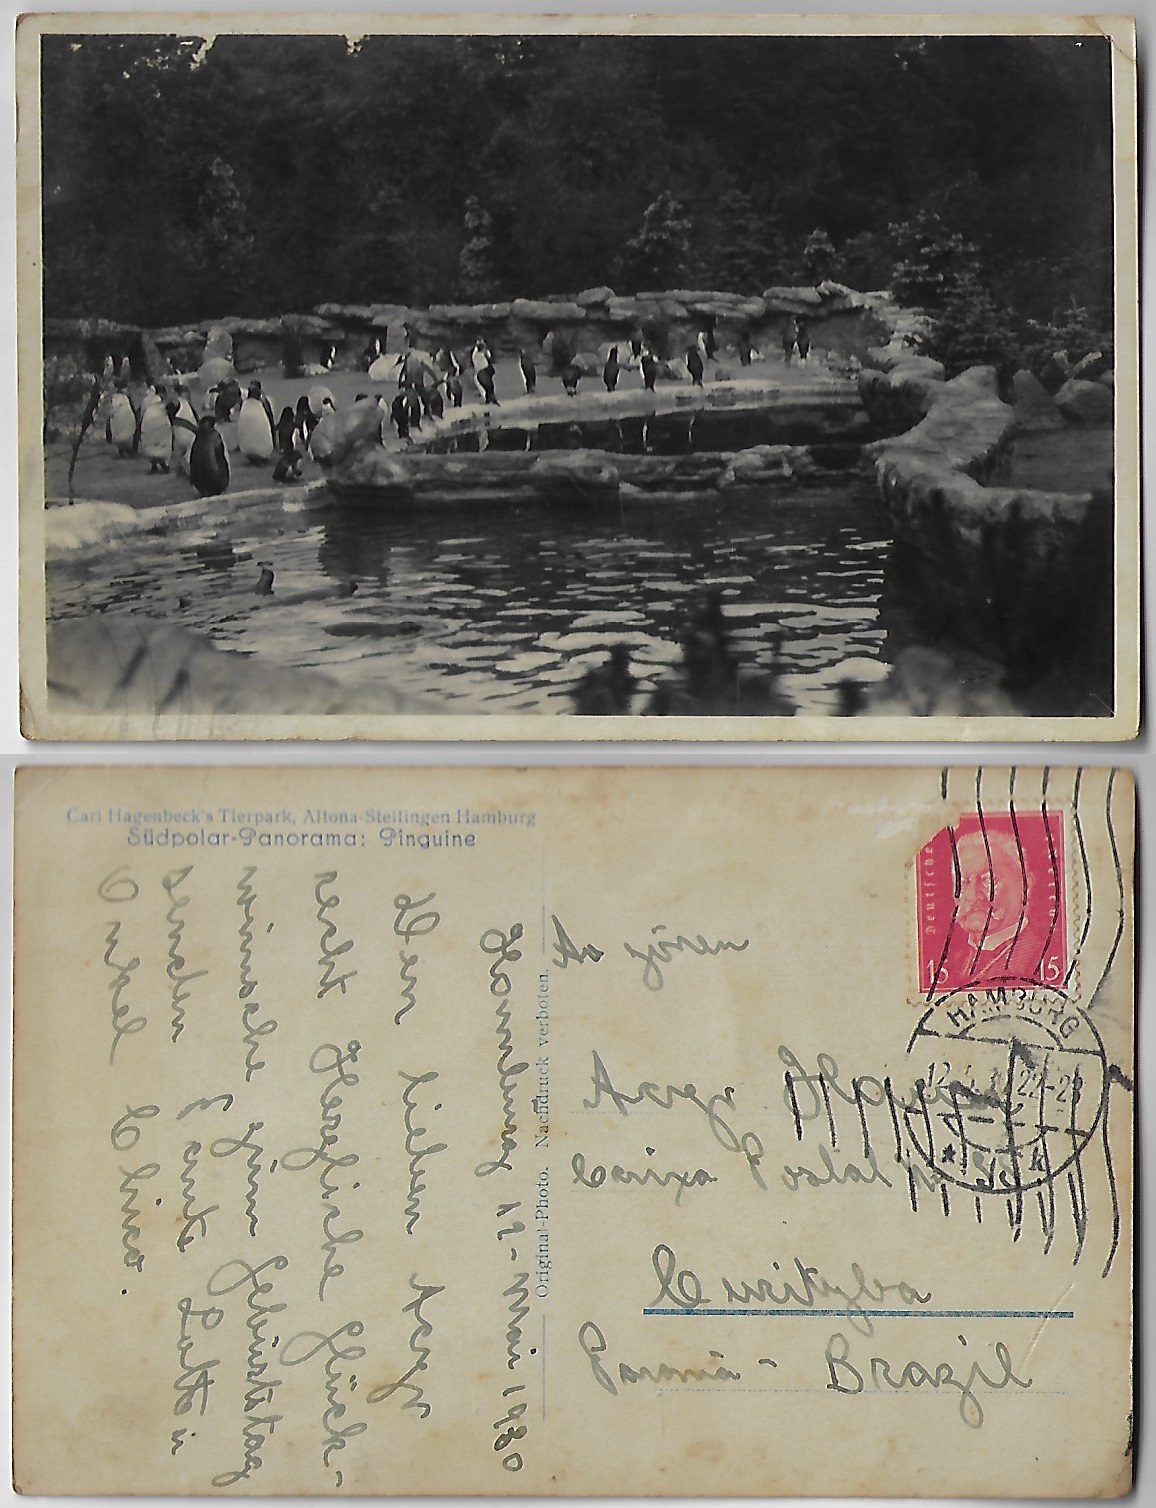 Carl Hagenbeck's Tierpark, Altona-Stellingen Hamburg
Südpolar-Panorama: Pinguine
Original-Photo. Nachdruck verboten.
Hamburg 12 - Mai 1930
Den lieben Acyr
recht Herzlische Glück-
wünsche zum Gebürtstag
senden Tante Lotte u
Onkel Chico.
Acyr
Caixa Postal
Curityba
Paraná - Brazil
Deutsches
15 15
HAMBURG
12. 22-23
* k